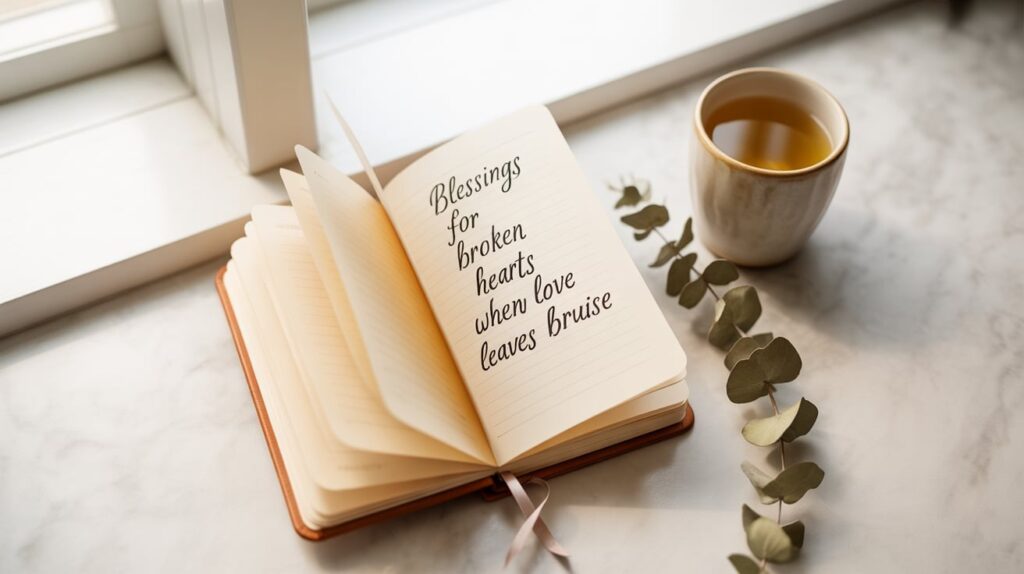 Blessings
for
broken
hearts
when love
leaves bruise